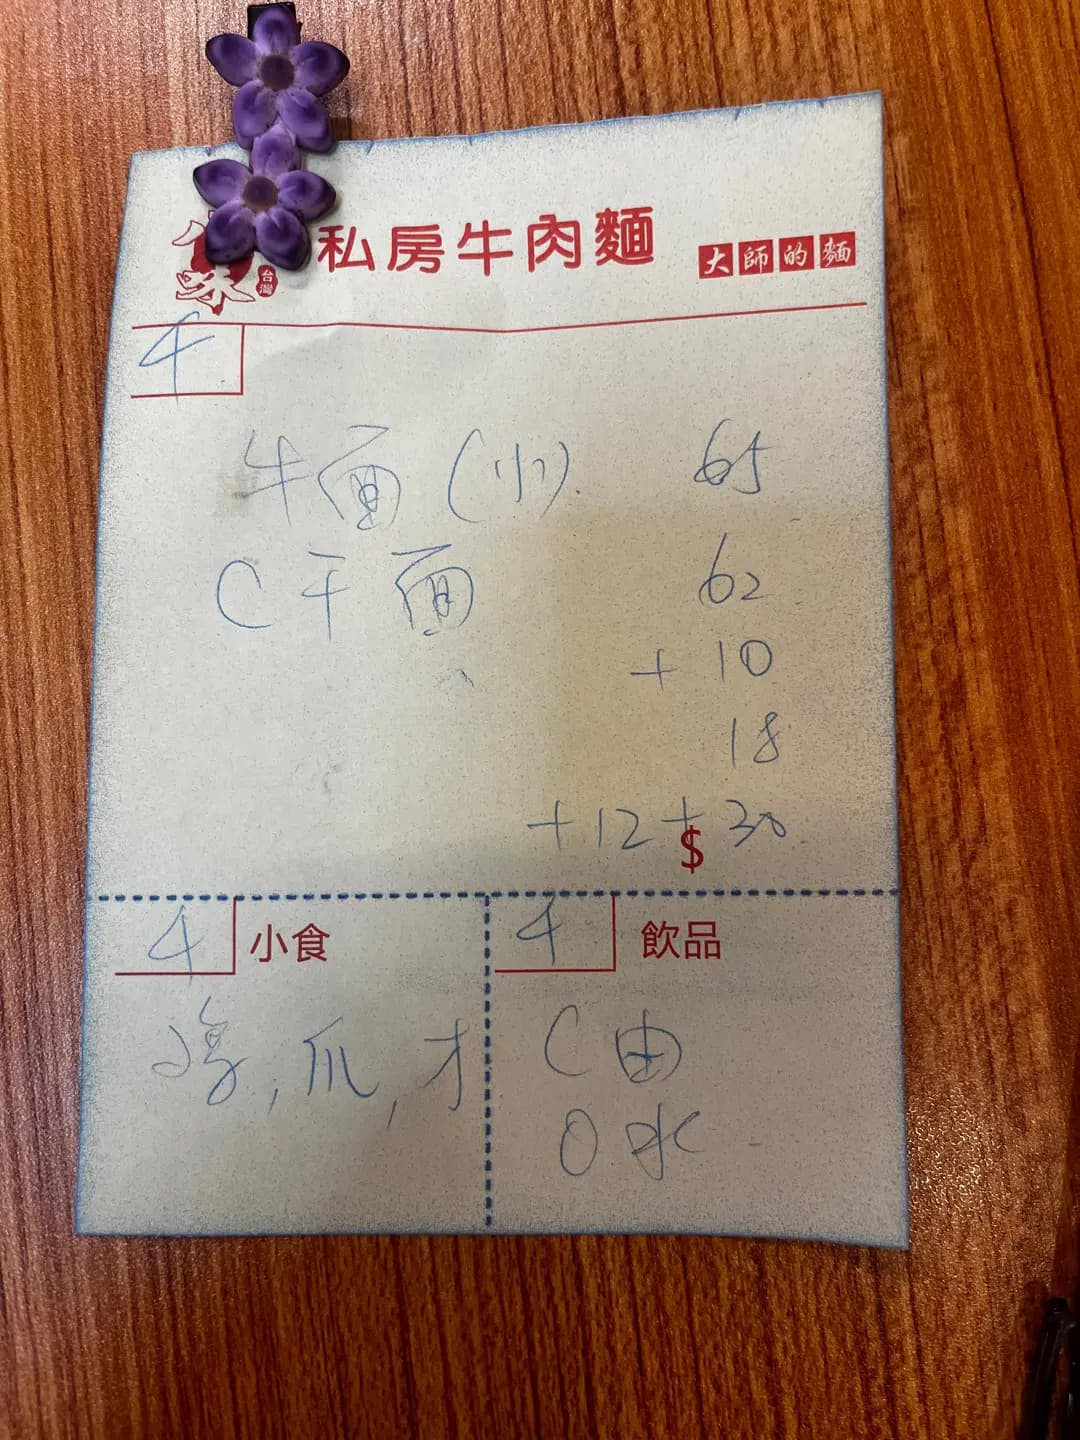 台灣
私房牛肉麵
大師的麵
4
牛面(小) 65
C干面 62
+10
18
+12+30
$
4 小食
4 飲品
爪,才
C由
0水